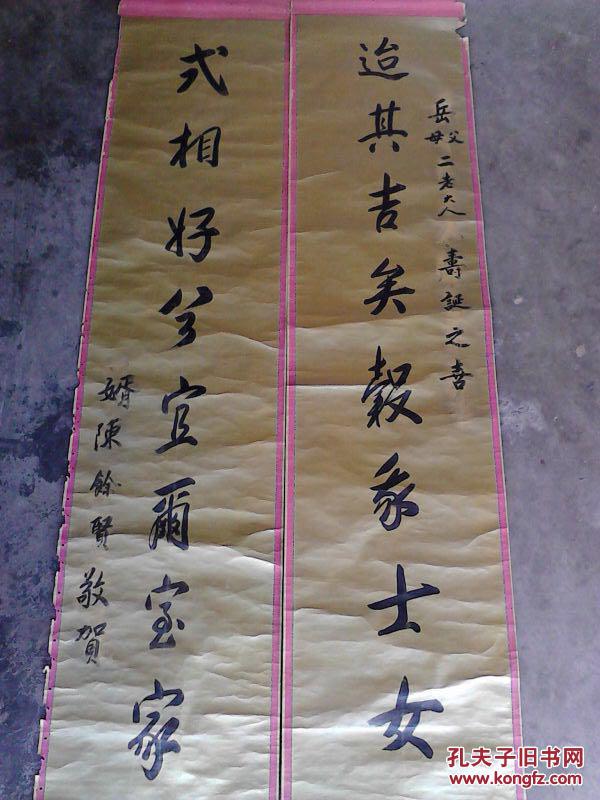 岳父母二老大人 壽誕之喜
迨其吉矣穀我士女
式相好兮宜爾室家
婿陳餘賢敬賀
孔夫子旧书网
www.kongfz.com